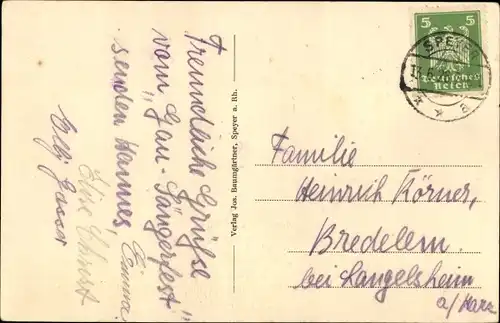 Freundliche Grüße
vom "Gau-Sängerfest"
senden Hannes, Emma
Elise Christ
Verlag Jos. Baumgärtner, Speyer a. Rh.
5 5
Deutsches
Reich
SPEYER
Familie
Heinrich Körner,
Bredelem.
bei Langelsheim
a/Harz